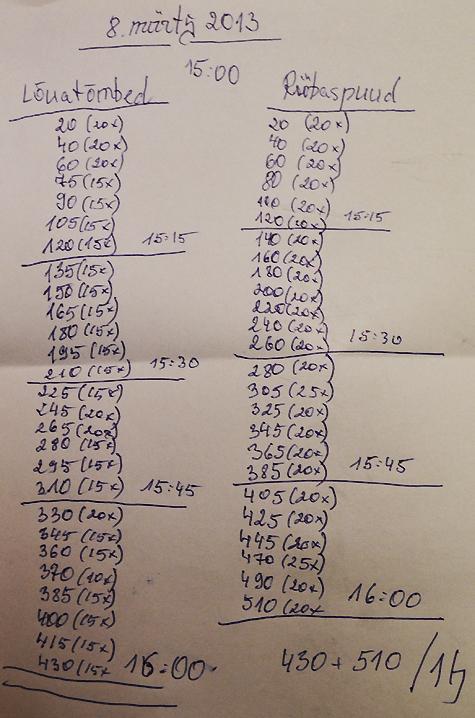 8. märts 2013
15:00
Lõuatõmbed
20 (20x)
40 (20x)
60 (20x)
75 (15x)
90 (15x)
105 (15x)
120 (15x) 15:15
135 (15x)
150 (15x)
165 (15x)
180 (15x)
195 (15x)
210 (15x) 15:30
225 (15x)
245 (20x)
265 (20x)
280 (15x)
295 (15x)
310 (15x) 15:45
330 (20x)
345 (15x)
360 (15x)
370 (10x)
385 (15x)
400 (15x)
415 (15x)
430 (15x 16:00
Rööbaspuud
20 (20x)
40 (20x)
60 (20x)
80 (20x)
100 (20x)
120 (20x) 15:15
140 (20x)
160 (20x)
180 (20x)
200 (20x)
220 (20x)
240 (20x)
260 (20x) 15:30
280 (20x)
305 (25x)
325 (20x)
345 (20x)
365 (20x)
385 (20x) 15:45
405 (20x)
425 (20x)
445 (20x)
470 (25x)
490 (20x)
510 (20x 16:00
430 + 510 / 1h